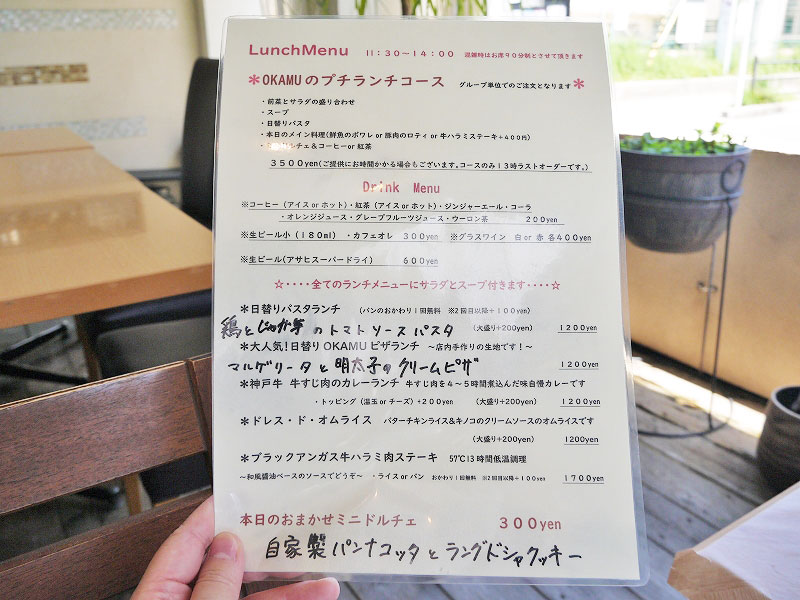 LunchMenu 11:30～14:00 混雑時はお席90分制とさせて頂きます
＊OKAMUのプチランチコース グループ単位でのご注文となります＊
・前菜とサラダの盛り合わせ
・スープ
・日替りパスタ
・本日のメイン料理(鮮魚のポワレ or 豚肉のロティ or 牛ハラミステーキ+400円)
ルチェ＆コーヒーor 紅茶
3500yen(ご提供にお時間かかる場合もございます。コースのみ13時ラストオーダーです。)
Drink Menu
※コーヒー（アイス or ホット）・紅茶（アイス or ホット）・ジンジャーエール・コーラ
・オレンジジュース・グレープフルーツジュース・ウーロン茶 200yen
※生ビール小（180ml） ・カフェオレ 300yen ※グラスワイン 白 or 赤 各400yen
※生ビール(アサヒスーパードライ) 600yen
☆・・・・全てのランチメニューにサラダとスープ付きます・・・・☆
＊日替りパスタランチ （パンのおかわり1回無料 ※2回目以降+100yen）
鶏とじゃが芋のトマトソースパスタ （大盛り+200yen） 1200yen
＊大人気！日替り OKAMU ピザランチ ～店内手作りの生地です！～
マルゲリータと明太子のクリームピザ 1200yen
＊神戸牛 牛すじ肉のカレーランチ 牛すじ肉を4～5時間煮込んだ味自慢カレーです
・トッピング（温玉 or チーズ）+200yen （大盛り+200yen） 1200yen
＊ドレス・ド・オムライス バターチキンライス＆キノコのクリームソースのオムライスです
（大盛り+200yen） 1200yen
＊ブラックアンガス牛ハラミ肉ステーキ 57℃13時間低温調理
～和風醤油ベースのソースでどうぞ～ ・ライス or パン おかわり1回無料 ※2回目以降+100yen 1700yen
本日のおまかせミニドルチェ 300yen
自家製パンナコッタとラングドシャクッキー